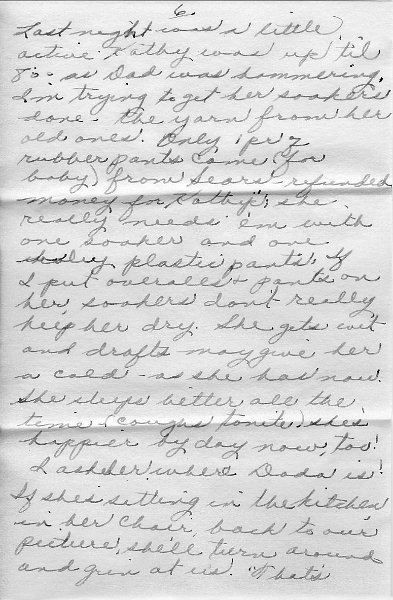 6.
Last night was a little
active. Kathy was up 'til
8:00 as Dad was hammering.
I'm trying to get her soakers
done - the yarn from her
old ones. Only 1 pr of
rubber pants came (for
baby) from Sears - refunded
money for Kathy's; she
really needs 'em with
one soaker and one
plastic pants. If
I put overalls & pants on
her, soakers don't really
keep her dry. She gets wet
and drafts may give her
a cold - as she has now.
She sleeps better all the
time (coughs tonite) she's
happier by day now, too!
I ask her where Dada is!
If she's sitting in the kitchen
in her chair, back to our
picture, she'll turn around
and grin at us. "That's